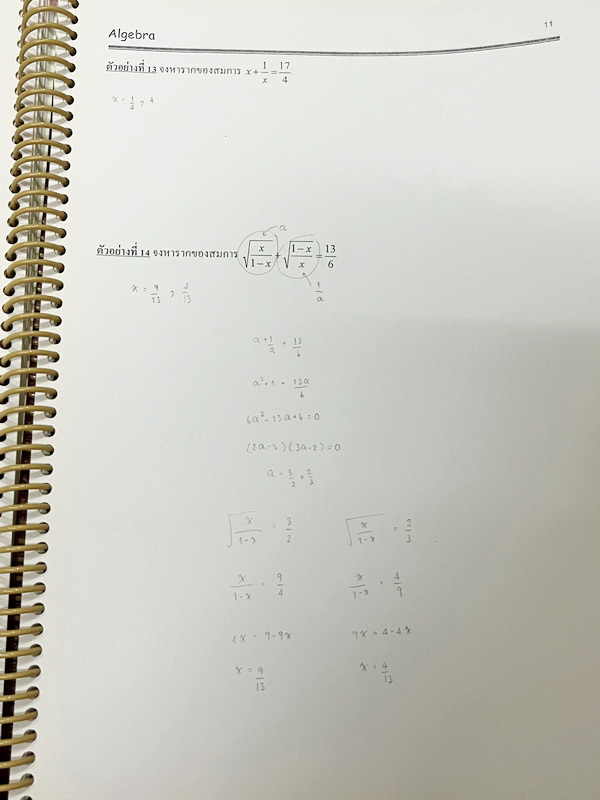 11
Algebra
ตัวอย่างที่ 13 จงหารากของสมการ x + 1/x = 17/4
x = 1/4 , 4
a
ตัวอย่างที่ 14 จงหารากของสมการ √(x/(1−x)) + √((1−x)/x) = 13/6
x = 9/13 , 4/13
1/a
a + 1/a = 13/6
a² + 1 = 13a/6
6a² - 13a + 6 = 0
(2a-3)(3a-2) = 0
a = 3/2 , 2/3
√(x/(1-x)) = 3/2 √(x/(1-x)) = 2/3
x/(1-x) = 9/4 x/(1-x) = 4/9
4x = 9-9x 9x = 4-4x
x = 9/13 x = 4/13